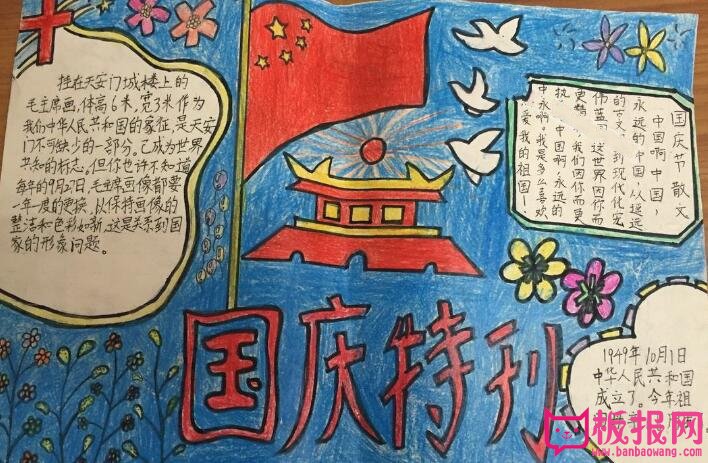 挂在天安门城楼上的
毛主席画,体高6米,宽3米作为
我们中华人民共和国的象征,是天安
门不可缺少的一部分。己成为世界
共知的标志。但你也许不知道
每年的9月27日,毛主席画像都要
一年一度的更换,以保持画像的
整洁和色彩如新,这是关系到国
家的形象问题。
国庆节散文
中国啊中国,
永远的中国!从遥远
的古文 到现代化宏
伟蓝图 这世界因你而
更精 我们因你而更
执 中国啊,永远的
中永啊。我是多么喜欢
爱我的祖国!
国庆特刊
1949年10月1日
中华人民共和国
成立了。今年祖
板报网
www.banbaowang.com